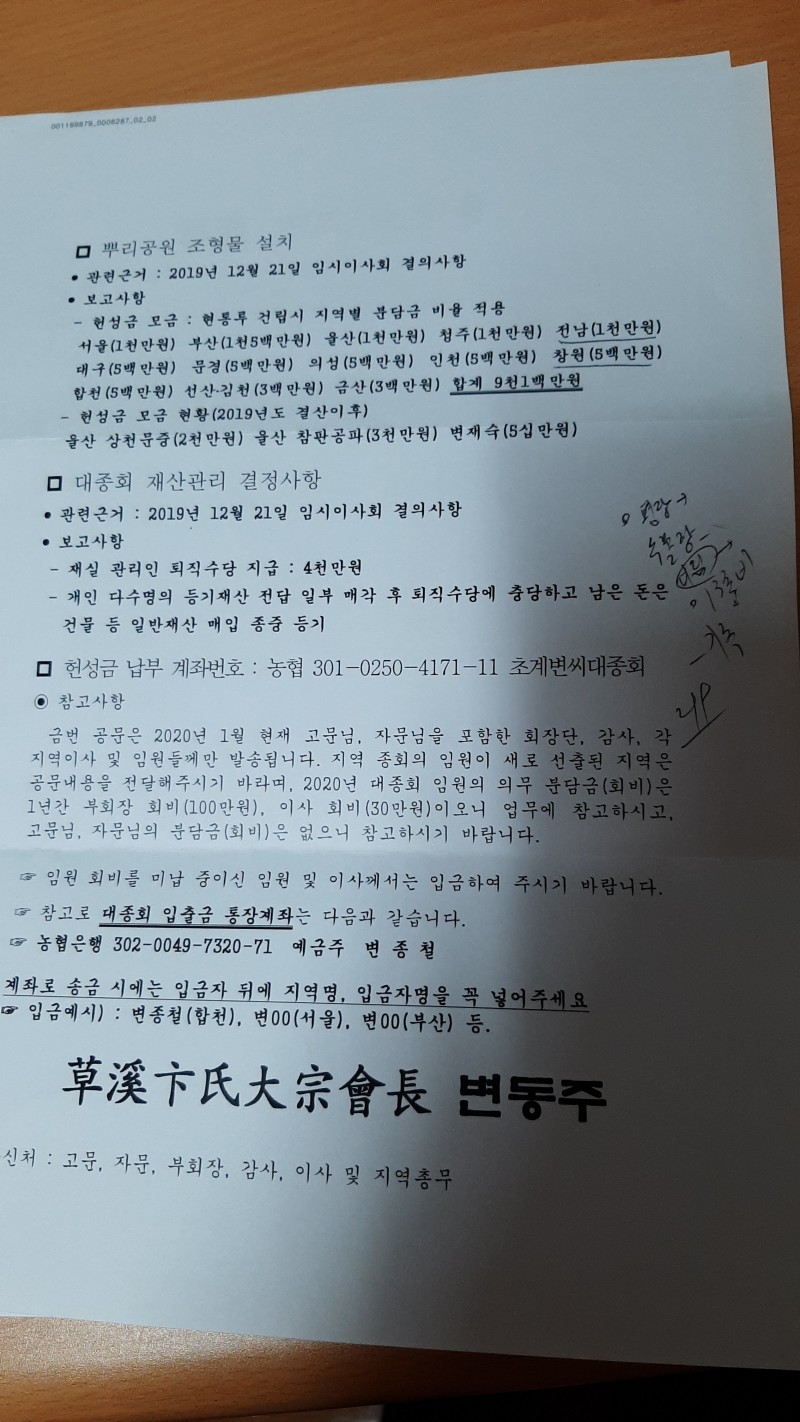 001169879_0006267_02_02
□ 뿌리공원 조형물 설치
• 관련근거 : 2019년 12월 21일 임시이사회 결의사항
• 보고사항
- 헌성금 모금 : 현통루 건립시 지역별 분담금 비율 적용
서울(1천만원) 부산(1천5백만원) 울산(1천만원) 청주(1천만원) 전남(1천만원)
대구(5백만원) 문경(5백만원) 의성(5백만원) 인천(5백만원) 창원(5백만원)
합천(5백만원) 선산·김천(3백만원) 금산(3백만원) 합계 9천1백만원
- 헌성금 모금 현황(2019년도 결산이후)
울산 상천문중(2천만원) 울산 참판공파(3천만원) 변재숙(5십만원)
□ 대종회 재산관리 결정사항
• 관련근거 : 2019년 12월 21일 임시이사회 결의사항
• 보고사항
- 재실 관리인 퇴직수당 지급 : 4천만원
- 개인 다수명의 등기재산 전답 일부 매각 후 퇴직수당에 충당하고 남은 돈은
건물 등 일반재산 매입 종중 등기
□ 헌성금 납부 계좌번호 : 농협 301-0250-4171-11 초계변씨대종회
◉ 참고사항
금번 공문은 2020년 1월 현재 고문님, 자문님을 포함한 회장단, 감사, 각
지역이사 및 임원들께만 발송됩니다. 지역 종회의 임원이 새로 선출된 지역은
공문내용을 전달해주시기 바라며, 2020년 대종회 임원의 의무 분담금(회비)은
1년간 부회장 회비(100만원), 이사 회비(30만원)이오니 업무에 참고하시고,
고문님, 자문님의 분담금(회비)은 없으니 참고하시기 바랍니다.
☞ 임원 회비를 미납 중이신 임원 및 이사께서는 입금하여 주시기 바랍니다.
☞ 참고로 대종회 입출금 통장계좌는 다음과 같습니다.
☞ 농협은행 302-0049-7320-71 예금주 변 종 철
계좌로 송금 시에는 입금자 뒤에 지역명, 입금자명을 꼭 넣어주세요
☞ 입금예시) : 변종철(합천), 변00(서울), 변00(부산) 등.
草溪卞氏大宗會長 변동주
신처 : 고문, 자문, 부회장, 감사, 이사 및 지역총무